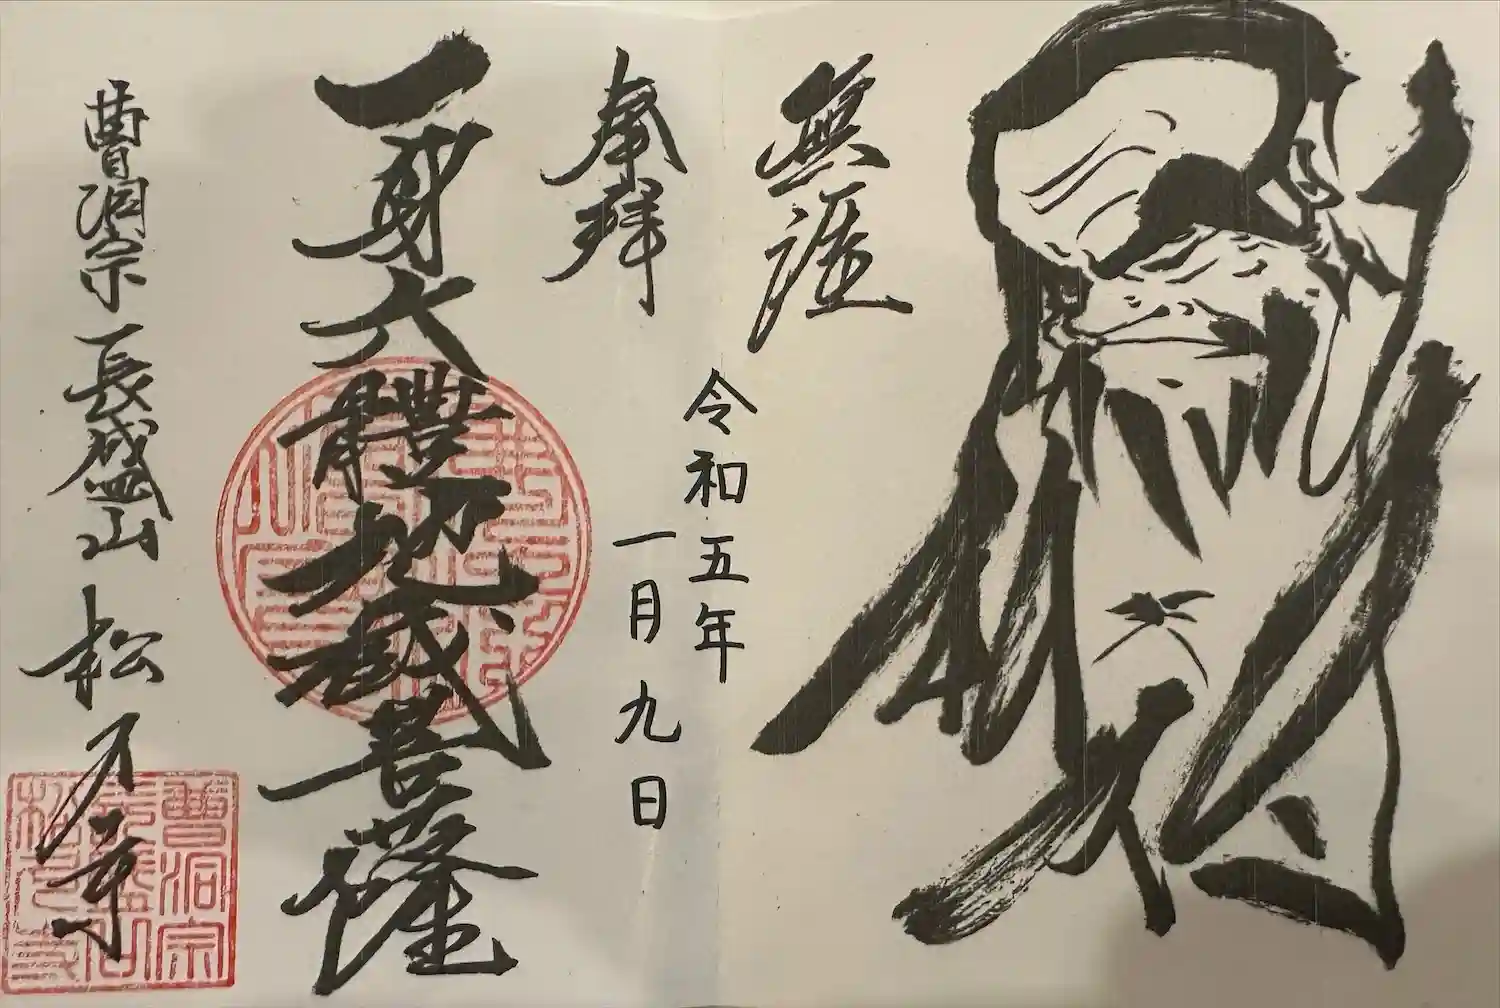 無涯
奉拝
令和五年
一月九日
一身六體地蔵菩薩
曹洞宗 長盛山 松月寺
曹洞宗
長盛山
松月寺